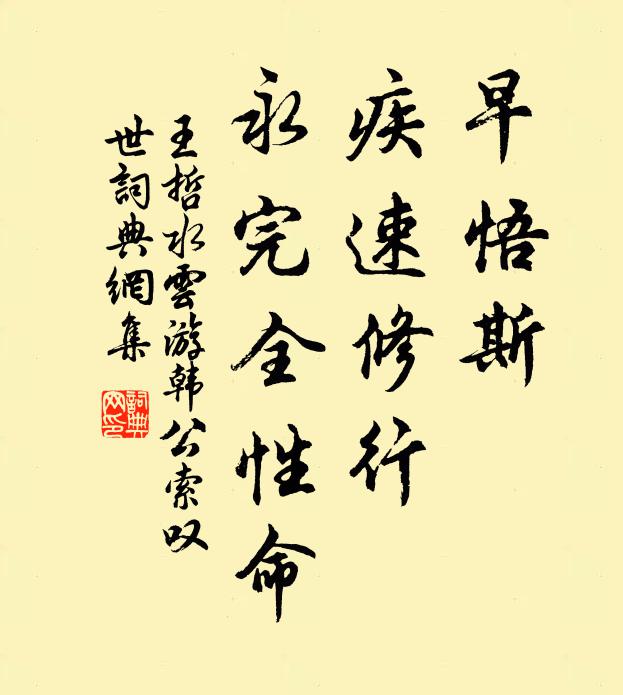 早悟斯
疾速修行
永完全性命
王哲水雲游韩公索叹
世詞典網集
詞典网印